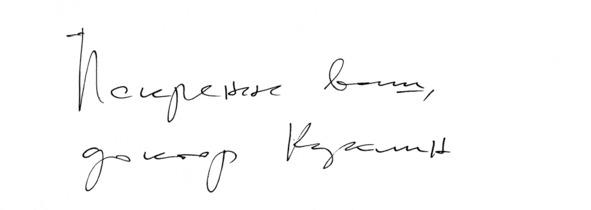 Искренне ваш,
доктор Куклин